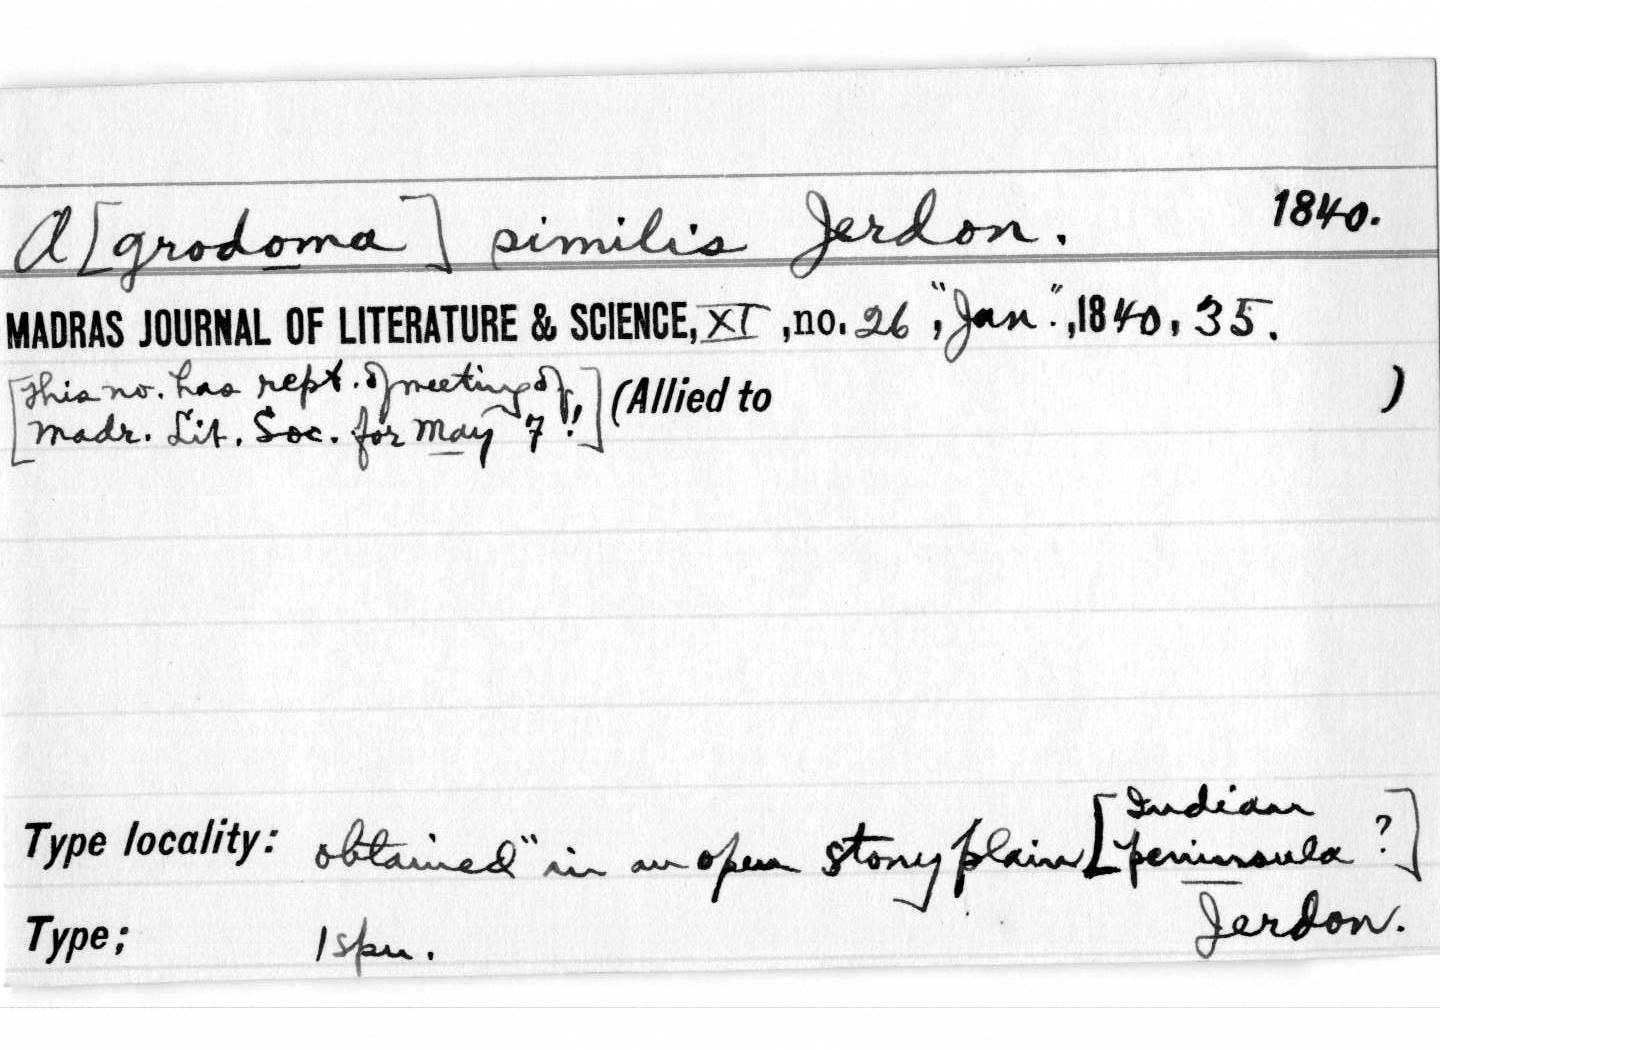 A[grodoma] similis Jerdon. 1840.
MADRAS JOURNAL OF LITERATURE & SCIENCE, XI, no. 26, "Jan.", 1840, 35.
[This no. has rept. of meeting of
Madr. Lit. Soc. for May 7!] (Allied to )
Type locality: obtained "in an open stony plain [Indian
peninsula ?]
Type; 1 spn. Jerdon.